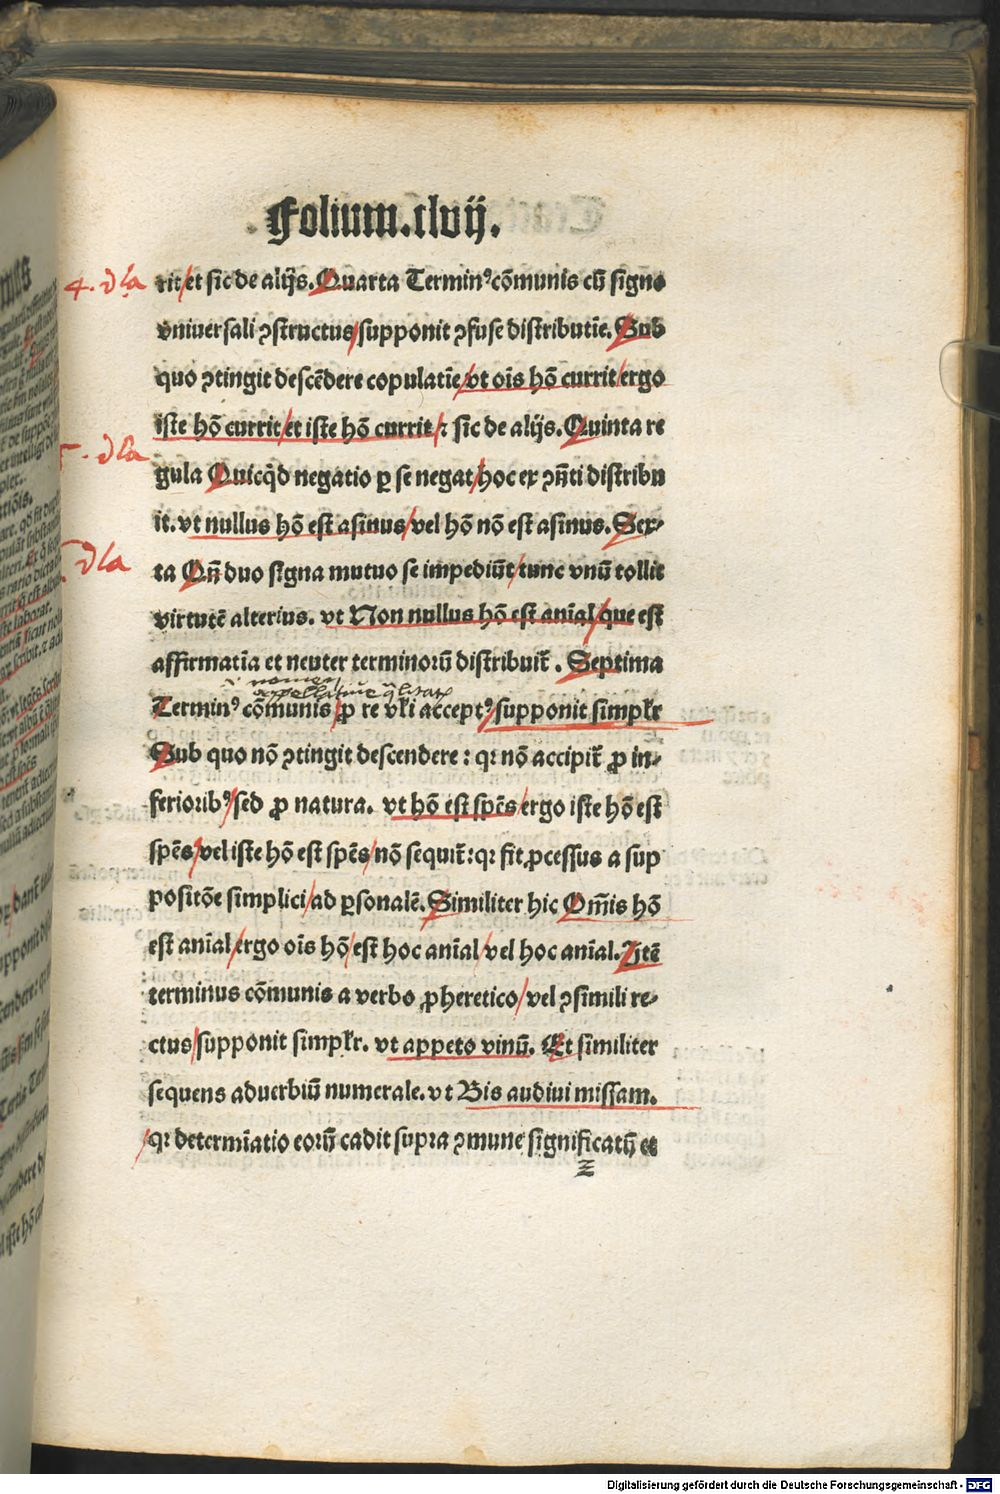 Folium.clvij.
4. rła
rit/et sic de alijs. Quarta Terminꝰ cōmunis cū signo
vniuersali ꝯstructus/supponit ꝯfuse distributīe. Sub
quo ꝯtingit descēdere copulatīe/vt oīs hō currit/ergo
iste hō currit/et iste hō currit/⁊ sic de alijs. Quinta re
gula Quicq̄d negatio ꝑ se negat/hoc ex ꝯn̄ti distribu
it. vt nullus hō est asinus/vel hō nō est asinus. Sex⸗
ta Qn̄ duo signa mutuo se impediūt/tunc vnū tollit
virtutē alterius. vt Non nullus hō est anīal/que est
affirmatīa et neuter terminorū distribuit᷑. Septima
nomen
appellatiuū
Terminꝰ cōmunis/ꝓ re vl̄i acceptꝰ/supponit simpl̄r
Sub quo nō ꝯtingit descendere: qꝛ nō accipit᷑ ꝓ in⸗
feroribꝰ/sed ꝓ natura. vt hō est spēs/ergo iste hō est
spēs/vel iste hō est spēs/nō sequit᷑: qꝛ fit ꝓcessus a sup
positōe simplici/ad ꝑsonalē. Similiter hic Om̄is hō
est anīal/ergo oīs hō/est hoc anīal/vel hoc anīal. Itē
terminus cōmunis a verbo ꝓheretico/vel ꝯsimili re⸗
ctus/supponit simpl̄r. vt appeto vinū. Et similiter
sequens aduerbiū numerale. vt Bis audiui missam.
qꝛ determīatio eorū cadit supra ꝯmune significatū et
Digitalisierung gefördert durch die Deutsche Forschungsgemeinschaft - DFG